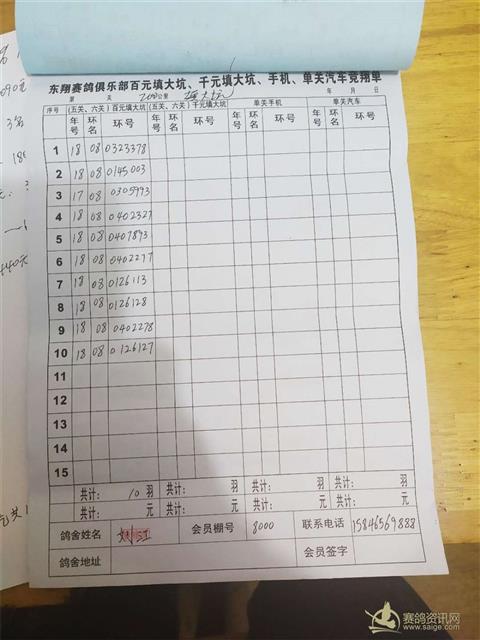 东翔赛鸽俱乐部百元填大坑、千元填大坑、手机、单关汽车竞翔单
第 页 200元 填大坑 年 月 日
序号 (五关、六关)百元填大坑 (五关、六关)千元填大坑 单关手机 单关汽车
年号 环名 环号 年号 环名 环号 年号 环名 环号 年号 环名 环号
1 18 08 0323378
2 18 08 0145003
3 17 08 0305993
4 18 08 0402327
5 18 08 0407893
6 18 08 0402277
7 18 08 0126113
8 18 08 0126128
9 18 08 0402278
10 18 08 0126127
11
12
13
14
15
共计: 10 羽 共计: 羽 共计: 羽 共计: 羽
共计: 元 共计: 元 共计: 元 共计: 元
鸽舍姓名 会员棚号 8000 联系电话 15846569888
鸽舍地址 会员签字
赛鸽资讯网
www.saige.com